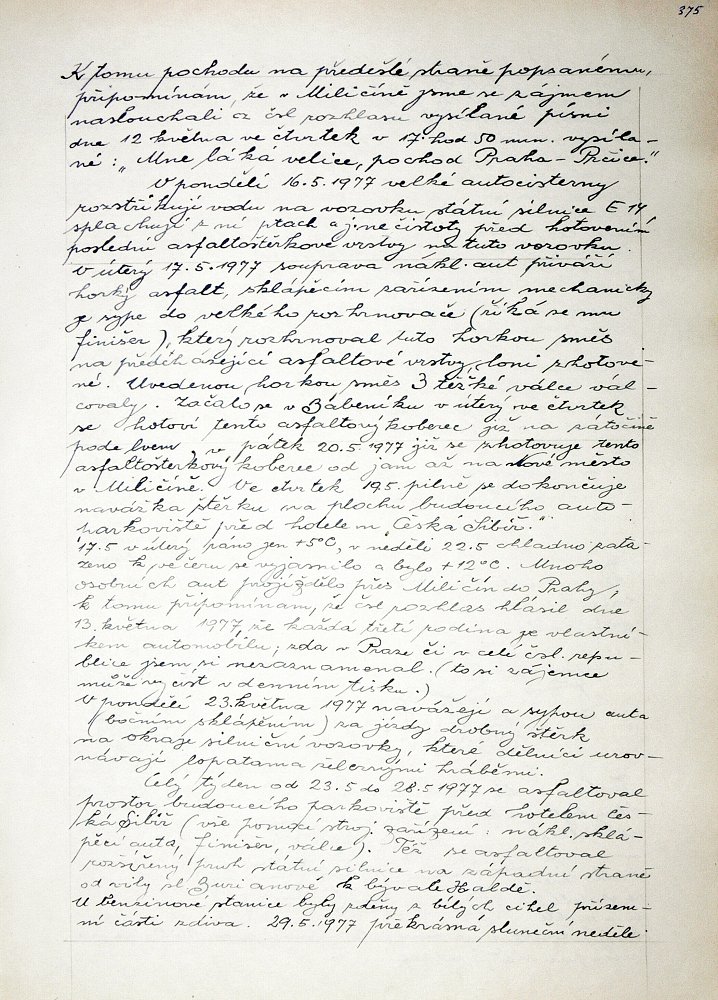 375
K tomu pochodu na předešlé straně popsanému,
připomínám, že v Miličíně jsme se zájmem
naslouchali z čsl rozhlasu vysílané písni
dne 12 května ve čtvrtek v 17.hod 50 min. vysíla-
né: "Mne láká velice, pochod Praha – Prčice."
V pondělí 16.5.1977 velké autocisterny
rozstřikují vodu na vozovku státní silnice E 14
splachují z ní prach a jiné čistoty před hotovením
poslední asfaltoštěrkové vrstvy na tuto vozovku.
V úterý 17.5.1977 souprava nákl. aut přiváží
horký asfalt, sklápěcím zařízením mechanicky
je sype do velkého rozhrnovače (říká se mu
finišer), který rozhrnoval tuto horkou směs
na předcházející asfaltové vrstvy, loni zhotove-
né. Uvedenou horkou směs 3 těžké válce vál-
covaly. Začalo se v Bábeníku v úterý, ve čtvrtek
se hotoví tento asfaltový koberec již na zátočině
pode lvem, v pátek 20.5.1977 již se zhotovuje tento
asfaltoštěrkový koberec od jam až na Nové město
v Miličíně. Ve čtvrtek 19.5. pilně se dokončuje
navážka štěrku na plochu budoucího auto-
parkoviště před hotelem "Česká Sibiř."
17.5 v úterý ráno jen +5°C, v neděli 22.5 chladno zata-
ženo k večeru se vyjasnilo a bylo +12°C. Mnoho
osobních aut projíždělo přes Miličín do Prahy,
k tomu připomínám, že čsl rozhlas hlásil dne
13. května 1977, že každá třetí rodina je vlastní-
kem automobilu; zda v Praze či v celé čsl. repu-
blice jsem si nezaznamenal. (to si zájemce
může vyčíst v denním tisku.)
V pondělí 23.května 1977 navážejí a sypou auta
(bočním sklápěním) za jízdy drobný štěrk
na okraje silniční vozovky, které dělníci urov-
návají lopatama železnými hráběmi.
Celý týden od 23.5 do 28.5 1977 se asfaltoval
prostor budoucího parkoviště před hotelem Čes-
ká Sibiř (vše pomocí stroj. zařízení: nákl. sklá-
pěcí auta, finišer, válce). Též se asfaltoval
rozšířený pruh státní silnice na západní straně
od vily sl Burianové k bývalé Haldě.
U benzinové stanice byly zděny z bílých cihel přízem-
ní části zdiva. 29.5.1977 překrásná sluneční neděle.